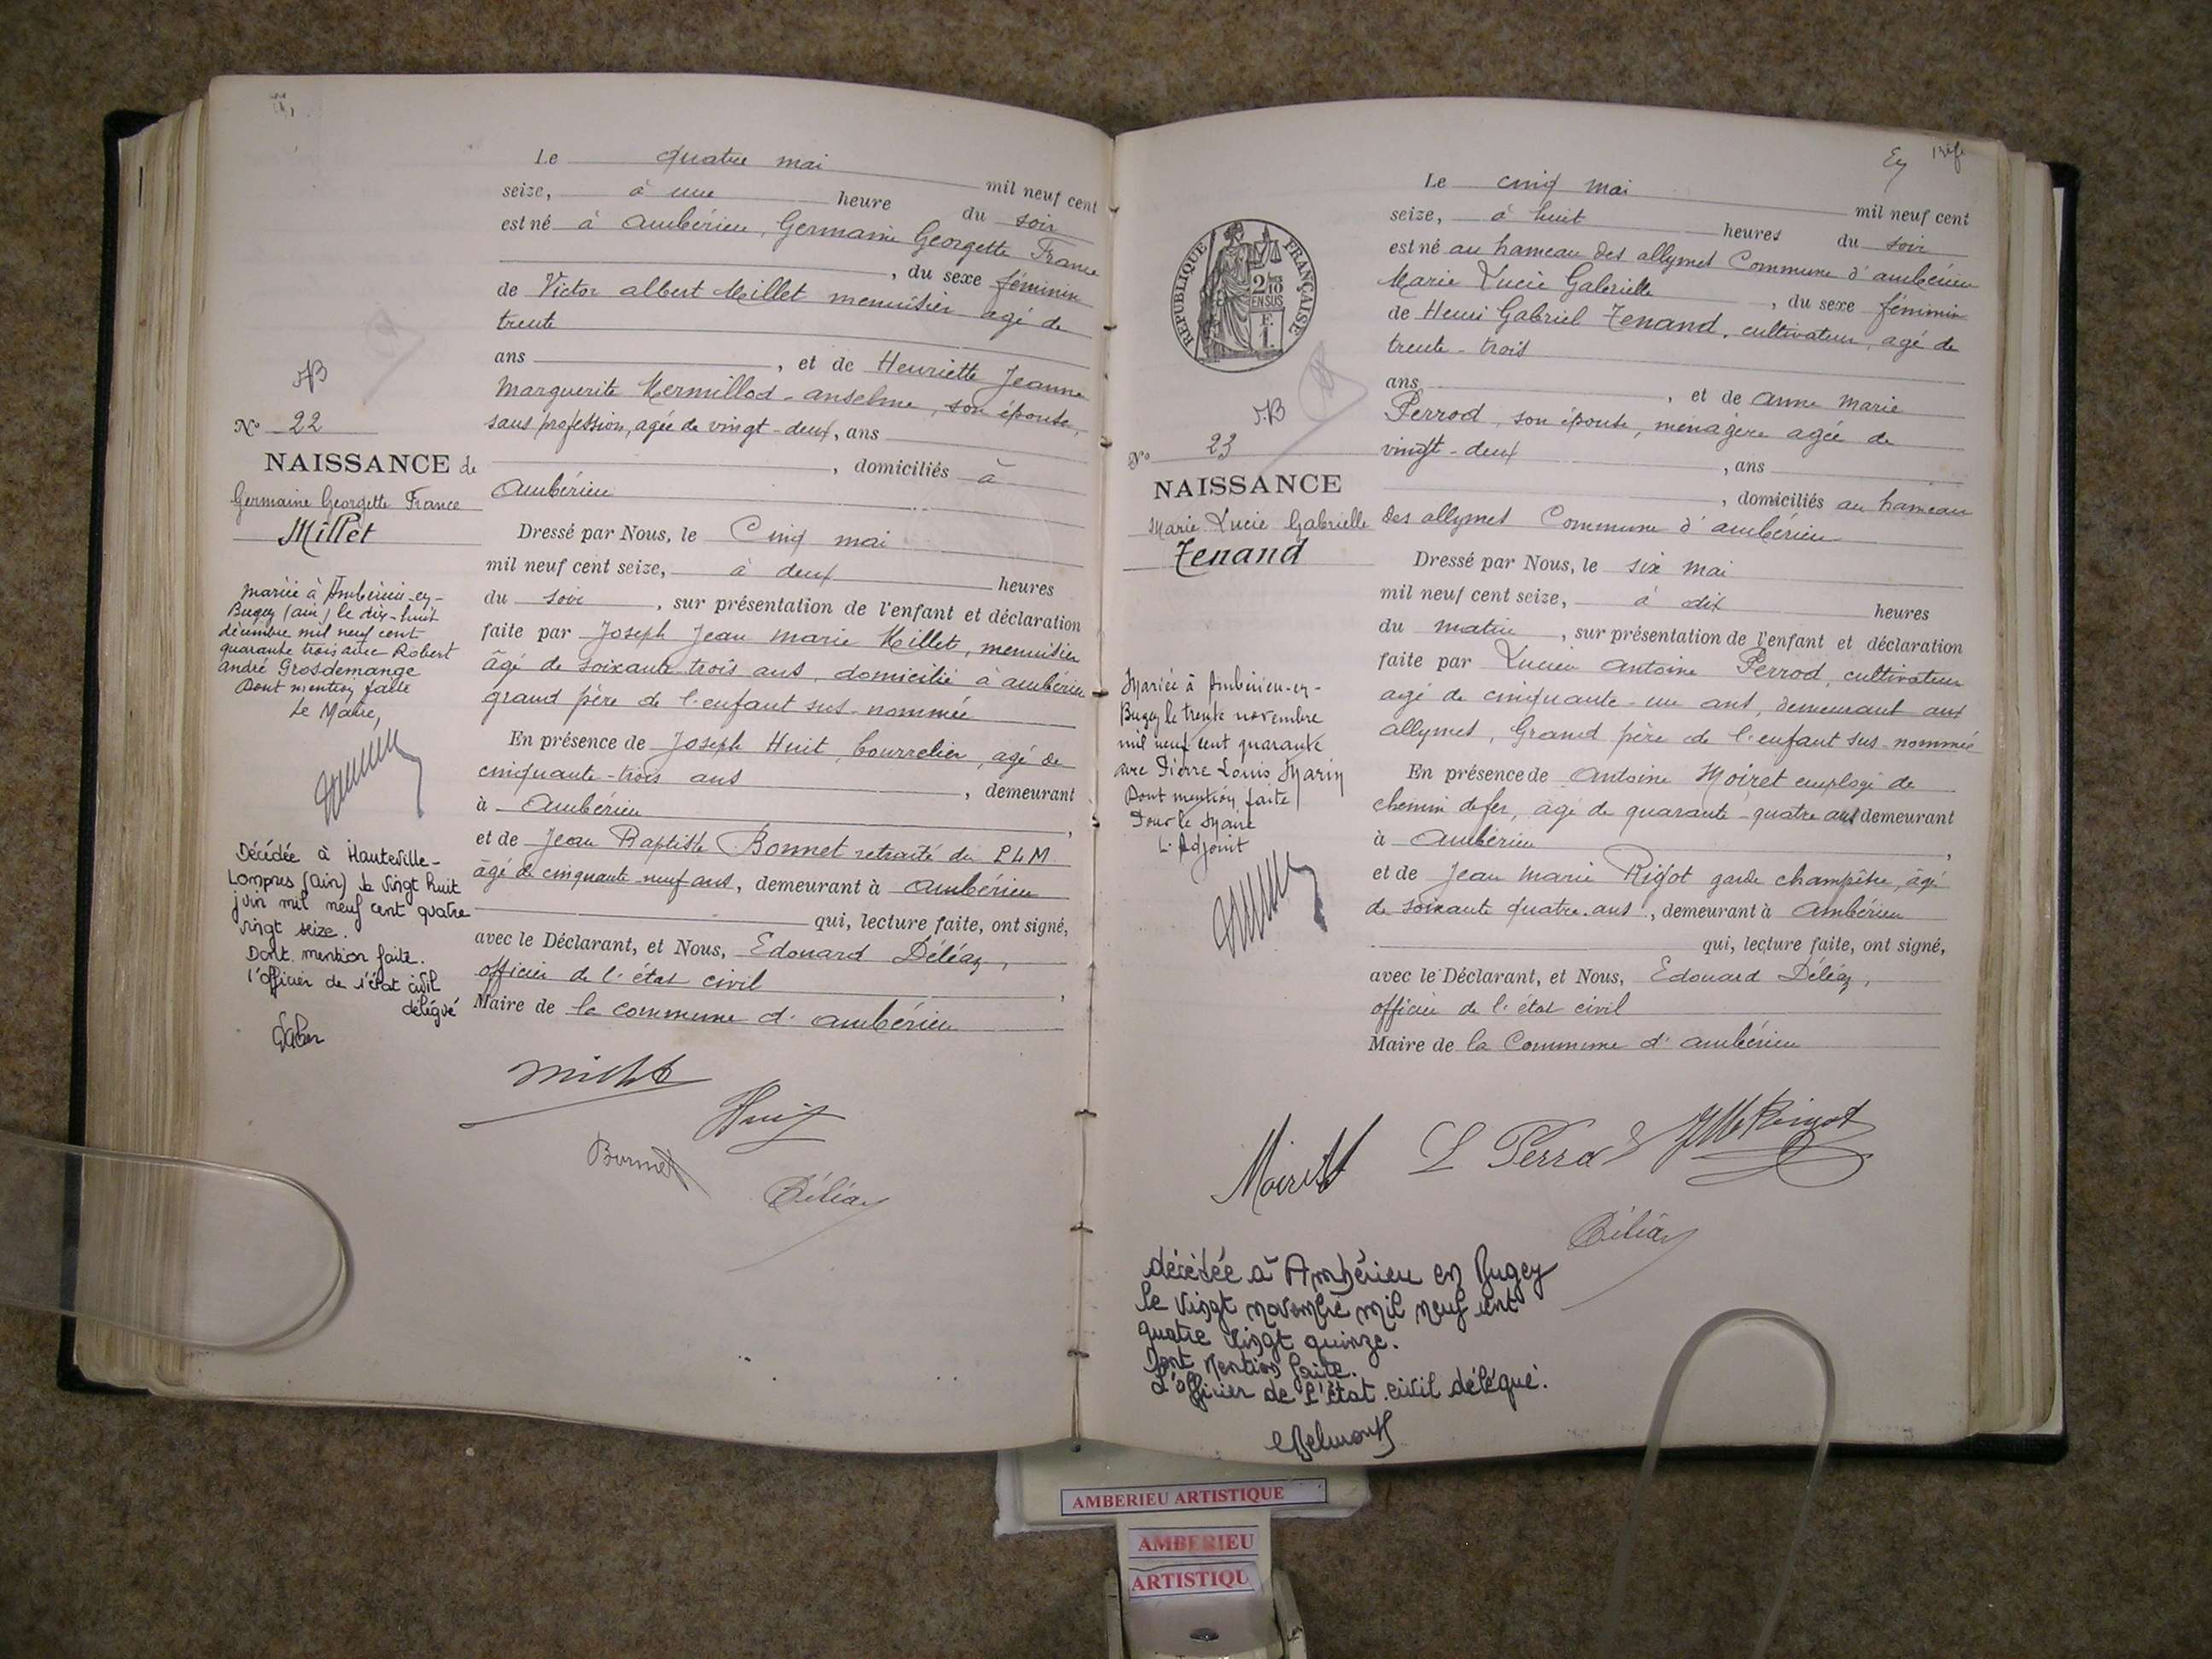 Le quatre mai mil neuf cent
seize, à une heure du soir
est né à Ambérieu, Germaine Georgette France
, du sexe féminin
de Victor albert Millet menuisier agé de
trente
ans , et de Henriette Jeanne
Marguerite Mermillod-anselme, son épouse,
sans profession, agée de vingt-deux, ans
, domiciliés à
Ambérieu
Dressé par Nous, le Cinq mai
mil neuf cent seize, à deux heures
du soir , sur présentation de l'enfant et déclaration
faite par Joseph Jean Marie Millet, menuisier
âgé de soixante-trois ans, domicilié à ambérieu
grand père de l'enfant sus-nommée
En présence de Joseph Huit, bourrelier, agé de
cinquante-trois ans , demeurant
à Ambérieu ,
et de Jean Baptiste Bonnet retraité du PLM
âgé de cinquante-neuf ans, demeurant à Ambérieu
qui, lecture faite, ont signé,
avec le Déclarant, et Nous, Edouard Déléaz,
officier de l'état civil ,
Maire de la commune d'Ambérieu
Millet
Huit
Bonnet
Déléaz
AB
N° 22
NAISSANCE de
Germaine Georgette France
Millet
Mariée à Ambérieu-en-
Bugey (ain) le dix-huit
décembre mil neuf cent
quarante trois avec Robert
andré Grosdemange
Dont mention faite
Le Maire,
Décédée à Hauteville-
Lompnes (Ain) le vingt huit
juin mil neuf cent quatre
vingt seize.
Dont mention faite.
l'officier de l'état civil
délégué
Le cinq mai mil neuf cent
seize, à huit heures du soir
est né au hameau des allymes Commune d'ambérieu
Marie Lucie Gabrielle , du sexe féminin
de Henri Gabriel Tenand, cultivateur, agé de
trente-trois
ans , et de anne marie
Perrod, son épouse, ménagère agée de
vingt-deux , ans
, domiciliés au hameau
des allymes Commune d'ambérieu
Dressé par Nous, le six mai
mil neuf cent seize, à dix heures
du matin , sur présentation de l'enfant et déclaration
faite par Lucien Antoine Perrod, cultivateur
agé de cinquante-un ans, demeurant aux
allymes, Grand père de l'enfant sus-nommée
En présence de Antoine Moiret employé de
chemin de fer, âgé de quarante-quatre ans demeurant
à Ambérieu ,
et de Jean Marie Rigot garde champêtre, âgé
de soixante quatre ans, demeurant à Ambérieu
qui, lecture faite, ont signé,
avec le Déclarant, et Nous, Edouard Déléaz,
officier de l'état civil
Maire de la Commune d'ambérieu
Moiret L Perrod JM Rigot
Déléaz
RÉPUBLIQUE FRANÇAISE
2/10
EN SUS
F.
1.
AB
N° 23
NAISSANCE
Marie Lucie Gabrielle
Tenand
Mariée à Ambérieu-en-
Bugey le trente novembre
mil neuf cent quarante
avec Pierre Louis Marin
Dont mention faite
Pour le Maire
L'Adjoint
décédée à Ambérieu en Bugey
le vingt novembre mil neuf cent
quatre vingt quinze.
Dont mention faite.
L'officier de l'état civil délégué.
AMBERIEU ARTISTIQUE
AMBERIEU
ARTISTIQU